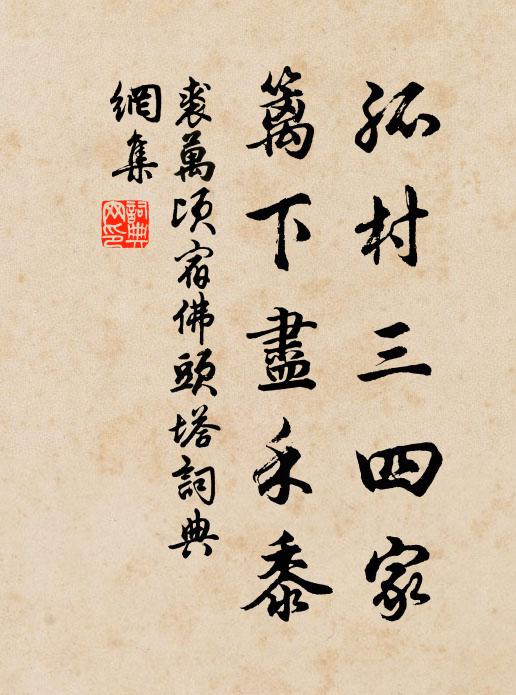 孤村三四家
籬下盡禾黍
裘萬頃宿佛頭塔詞典
網集
詞典
文印